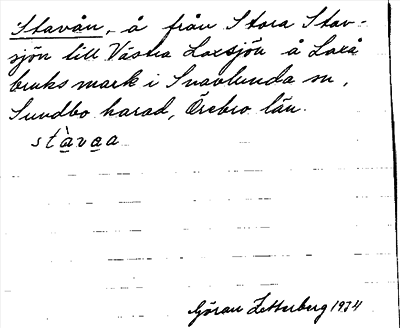 Stavån, å från Stora Stav-
sjön till Västra Laxsjön å Laxå
bruks mark i Snavlunda sn,
Sundbo härad, Örebro län.
stàvaa
Göran Zetterberg 1934